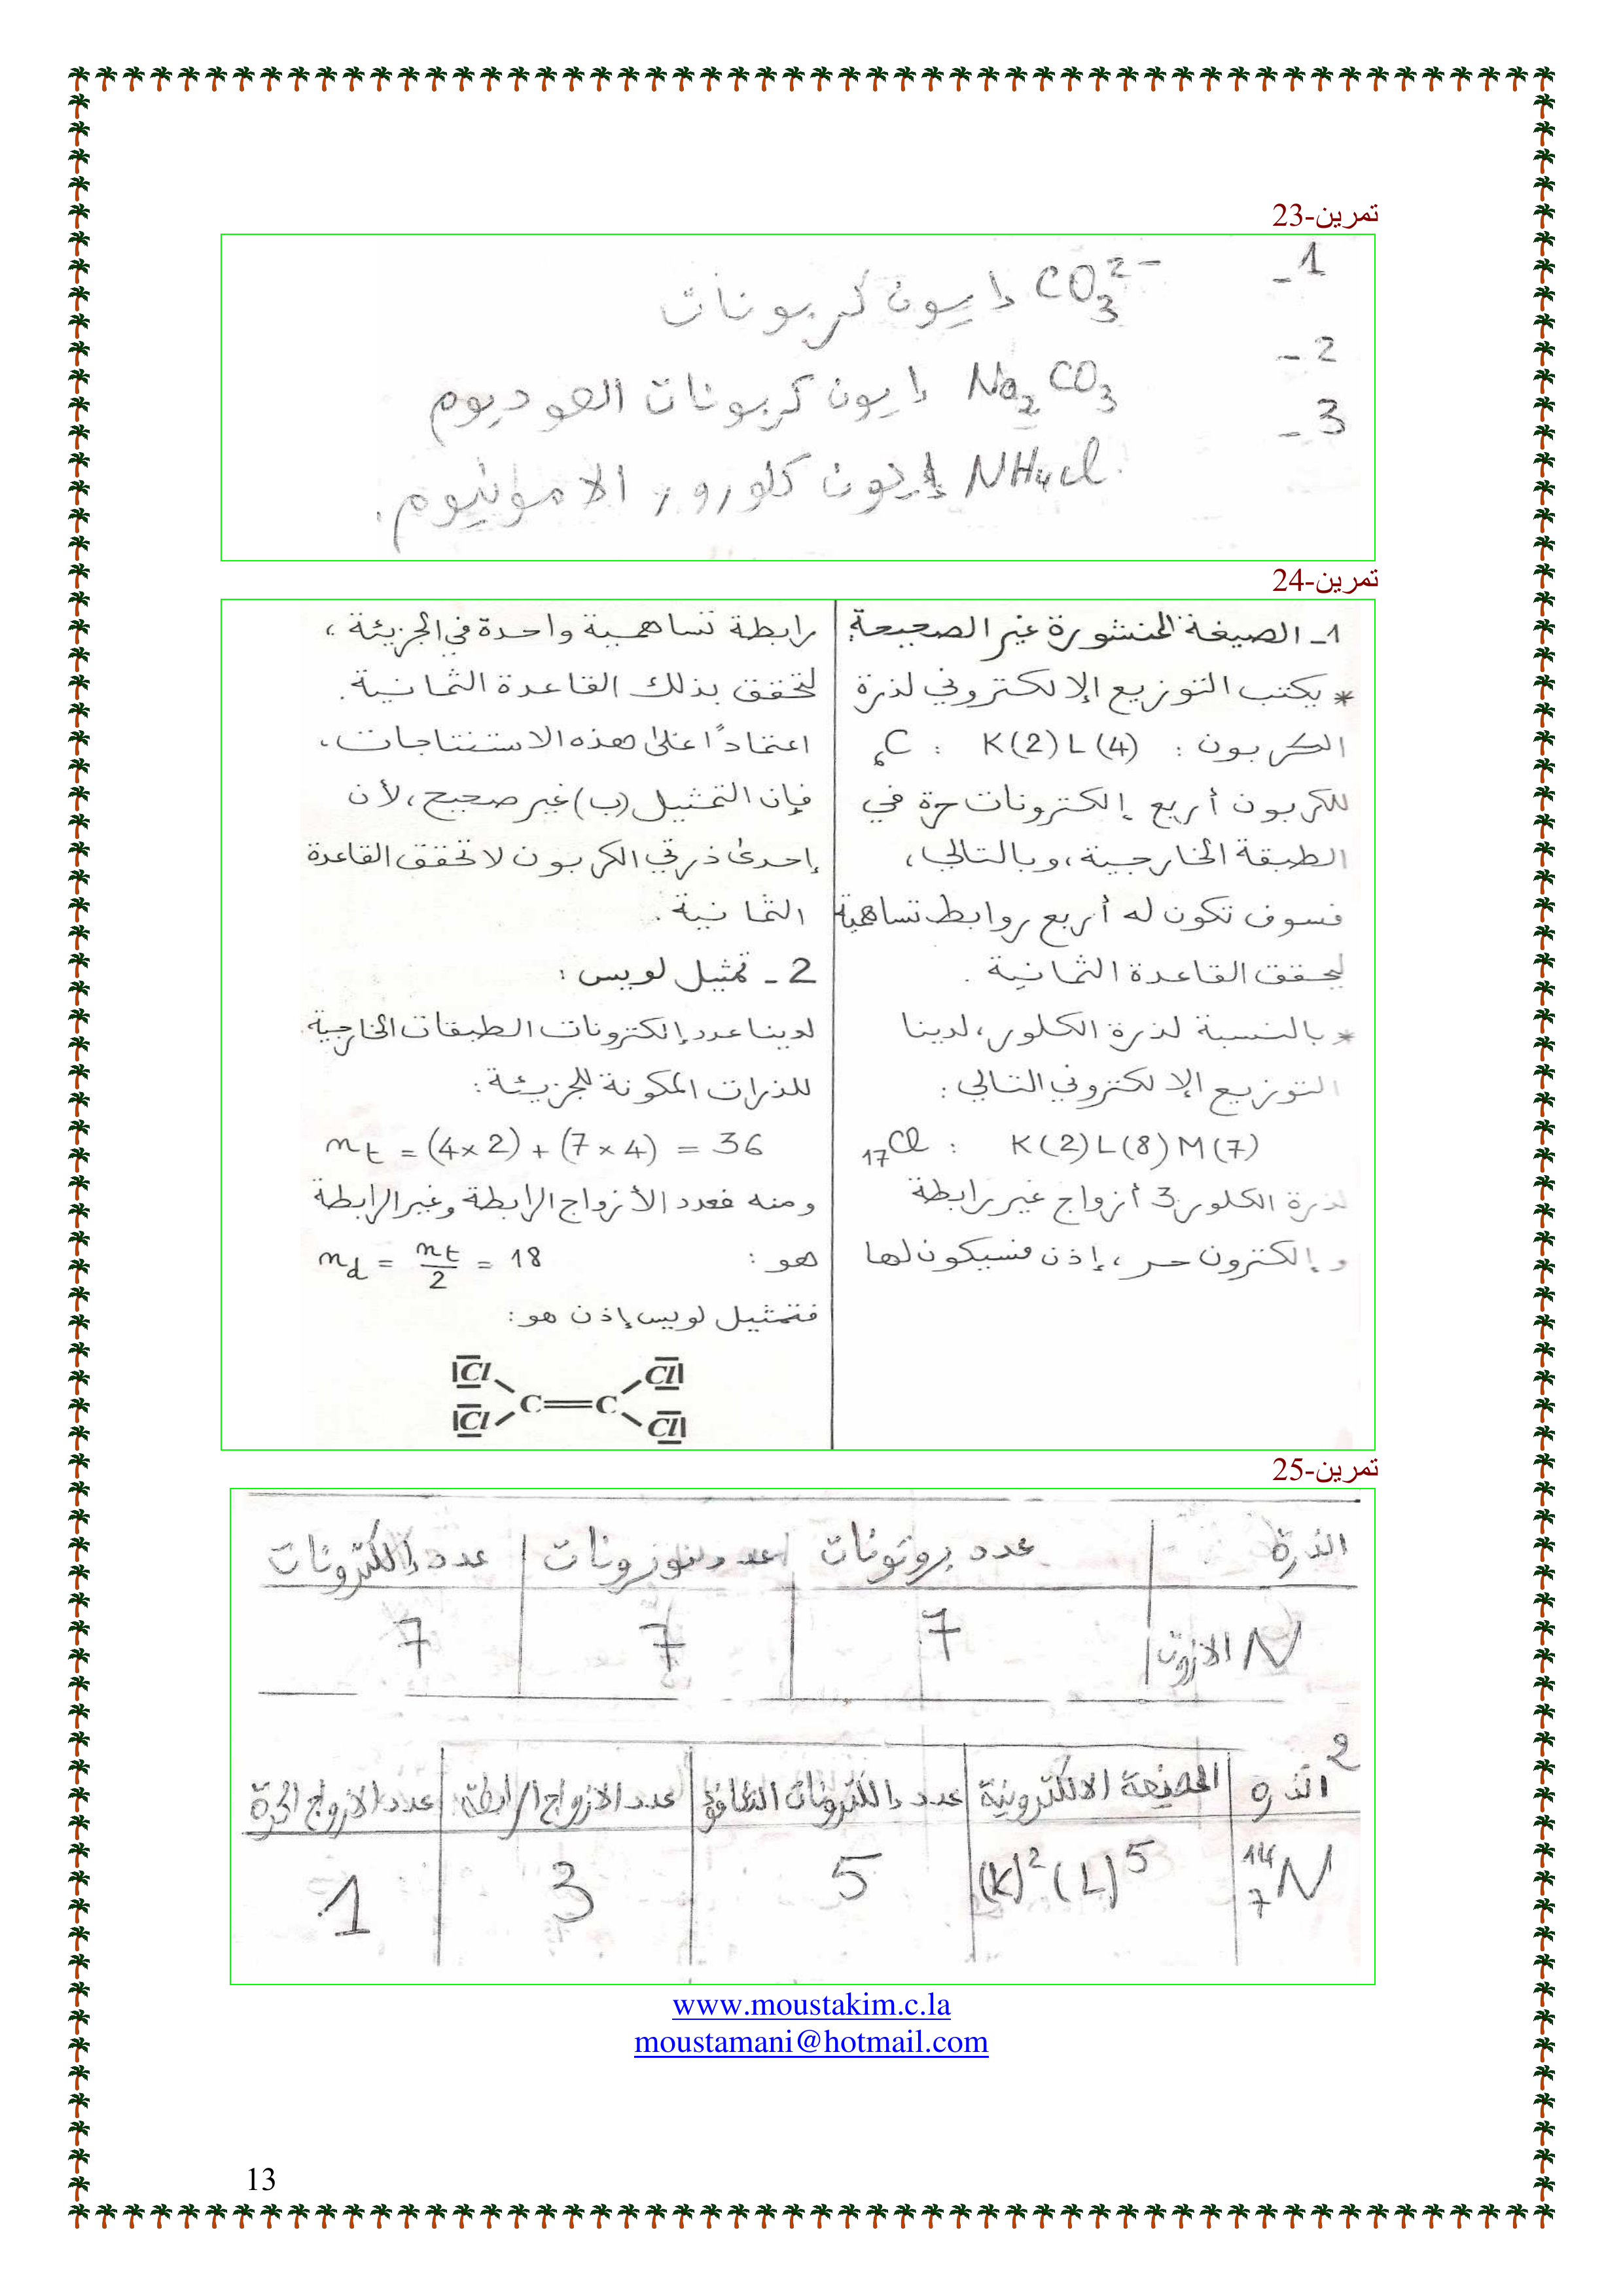 تمرين-23
1-
CO₃²⁻ إيون كربونات
2-
Na₂CO₃ إيون كربونات الصوديوم
3-
NH₄Cl إيون كلورور الامونيوم.
تمرين-24
1- الصيغة المنشورة غير الصحيحة:
* يكتب التوزيع الإلكتروني لذرة
الكربون : ₆C : K(2)L(4)
للكربون أربع إلكترونات حرة في
الطبقة الخارجية، وبالتالي،
فسوف تكون له أربع روابط تساهمية
ليحقق القاعدة الثمانية .
* بالنسبة لذرة الكلور، لدينا
التوزيع الإلكتروني التالي :
₁₇Cl : K(2)L(8)M(7)
لذرة الكلور 3 أزواج غير رابطة
و إلكترون حر، إذن فسيكون لها
رابطة تساهمية واحدة في الجزيئة ،
لتحقق بذلك القاعدة الثمانية .
اعتماداً على هذه الاستنتاجات،
فإن التمثيل (ب) غير صحيح، لأن
إحدى ذرتي الكربون لا تحقق القاعدة
الثمانية .
2- تمثيل لويس :
لدينا عدد إلكترونات الطبقات الخارجية
للذرات المكونة للجزيئة :
nt = (4×2) + (7×4) = 36
ومنه فعدد الأزواج الرابطة وغير الرابطة
هو : nd = nt/2 = 18
فتمثيل لويس إذن هو :
Cl Cl
C C
Cl Cl
تمرين-25
الذرة عدد بروتونات عدد نوترونات عدد إلكترونات
N الازوت 7 7 7
2
الذرة الصيغة الالكترونية عدد إلكترونات التكافؤ عدد الازواج الرابطة عدد الازواج الحرة
¹⁴₇N (K)²(L)⁵ 5 3 1
www.moustakim.c.la
moustamani@hotmail.com
13